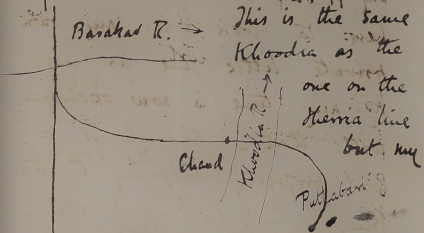 Barakar R. →
This is the same
Khoodia as the
one on the
Herria line
but my
Chand
Khoodia R. →
Putlabari